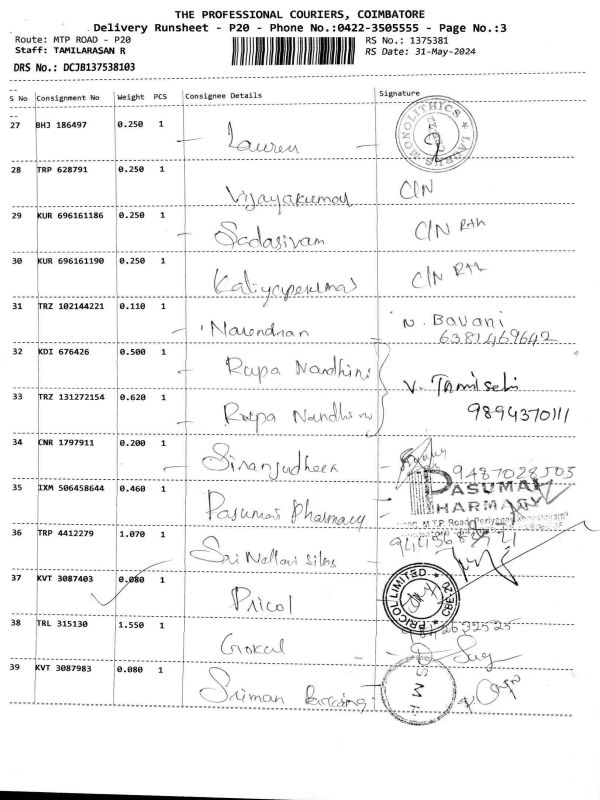 THE PROFESSIONAL COURIERS, COIMBATORE
Delivery Runsheet - P20 - Phone No.:0422-3505555 - Page No.:3
Route: MTP ROAD - P20 RS No.: 1375381
Staff: TAMILARASAN R RS Date: 31-May-2024
DRS No.: DCJB137538103
S No Consignment No Weight PCS Consignee Details Signature
27 BHJ 186497 0.250 1 Lauren MONOLITHICS
28 TRP 628791 0.250 1 Vijayakumar C/N
29 KUR 696161186 0.250 1 Sadasivam C/N Rth
30 KUR 696161190 0.250 1 Kaliyaperumal C/N Rth
31 TRZ 102144221 0.110 1 Narendran N. Bavani
6381469642
32 KDI 676426 0.500 1 Rupa Nandhini V. Tamilselvi
33 TRZ 131272154 0.620 1 Rupa Nandhini 9894370111
34 CNR 1797911 0.200 1 9487028503
35 IXM 506458644 0.460 1 Pasumai Pharmacy PASUMAI
PHARMACY
M.T.P. Road
36 TRP 4412279 1.070 1 Sri Nallavi Silks
37 KVT 3087403 0.080 1 Pricol PRICOL LIMITED ★ CBE-20 ★
38 TRL 315130 1.550 1 Gokul
39 KVT 3087983 0.080 1 Sriman